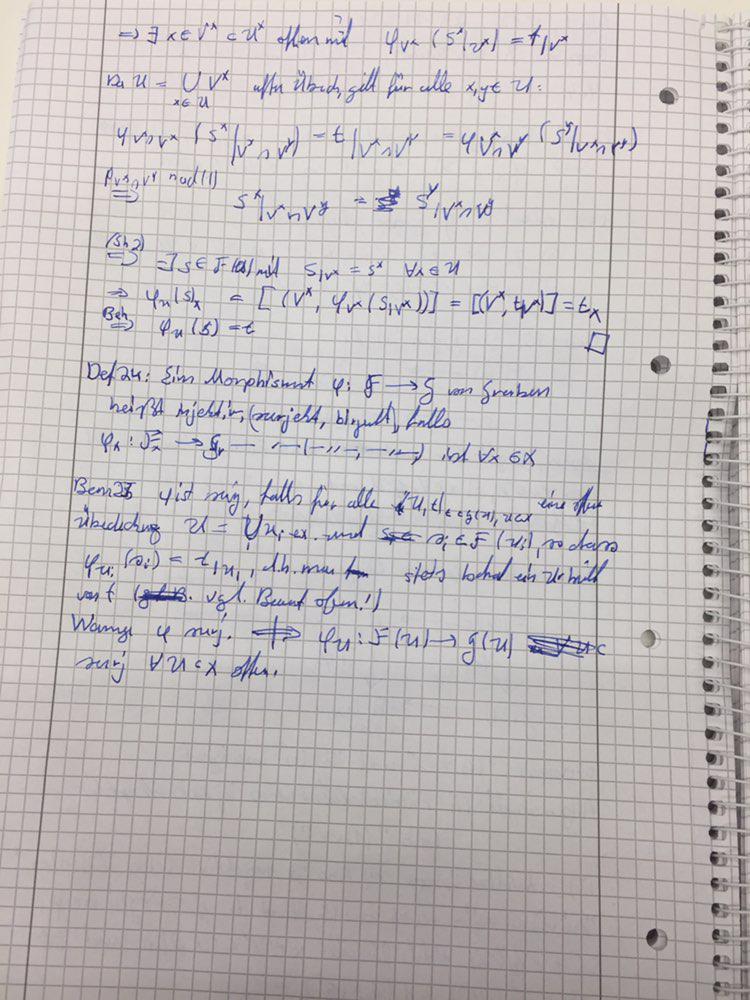 ⇒ ∃ x ∈ V^x ⊂ U^x offen mit φ_{V^x} (S^x|_{V^x}) = t|_{V^x}
Da U = ⋃_{x∈U} V^x offen Übeck, gilt für alle x, y ∈ U:
φ_{V^x∩V^y} (S^x|_{V^x∩V^y}) = t|_{V^x∩V^y} = φ_{V^x∩V^y} (S^y|_{V^x∩V^y})
φ_{V^x∩V^y} nach (1)
⇒ S^x|_{V^x∩V^y} = S^y|_{V^x∩V^y}
(Sh2)
⇒ ∃ s ∈ F(U) mit S|_{V^x} = S^x ∀x ∈ U
⇒ φ_U(s)_x = [(V^x, φ_{V^x}(S|_{V^x}))] = [(V^x, t|_{V^x})] = t_x
Beh
⇒ φ_U(s) = t □
Def 24: Ein Morphismus φ: F → G von Garben
heißt injektiv, (surjekt, bijekt), falls
φ_x: F_x → G_x — " — (— " —, — " —) ist ∀x ∈ X
Bem 25 φ ist surj, falls für alle U, t ∈ G(U), U⊂X eine offen
Überdeckung U = ⋃ U_i ex. und s_i ∈ F(U_i), so dass
φ_{U_i}(s_i) = t|_{U_i}, d.h. man stets lokal ein Urbild
von t (vgl. Beweis oben!)
φ surj. ⇏ φ_U: F(U) → G(U)
surj ∀ U ⊂ X offen.